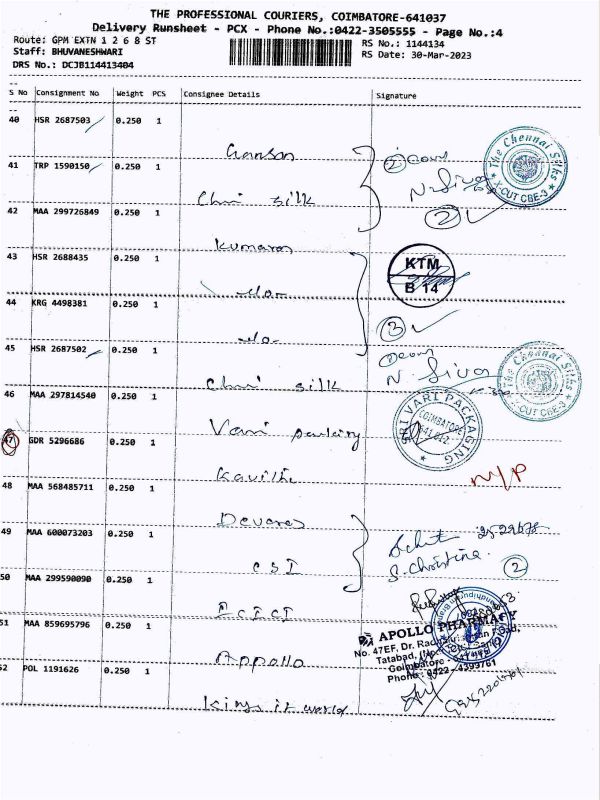 THE PROFESSIONAL COURIERS, COIMBATORE-641037
Delivery Runsheet - PCX - Phone No.:0422-3505555 - Page No.:4
Route: GPM EXTN 1 2 6 8 ST
RS No.: 1144134
Staff: BHUVANESHWARI
RS Date: 30-Mar-2023
DRS No.: DCJB114413404
S No Consignment No Weight PCS Consignee Details Signature
40 HSR 2687503 0.250 1
The Chennai Silks
X-CUT CBE-3
41 TRP 1590150 0.250 1
N. Siva
Chni silk
2
42 MAA 299726849 0.250 1
Kumaran
43 HSR 2688435 0.250 1
KTM
B 14
44 KRG 4498381 0.250 1
3
45 HSR 2687502 0.250 1
N. Siva
The Chennai Silks
X-CUT CBE-3
Chni silk
46 MAA 297814540 0.250 1
SRI VARI PACKAGING
COIMBATORE
Vari
47 GDR 5296686 0.250 1
M/P
48 MAA 568485711 0.250 1
49 MAA 600073203 0.250 1
CSI
S. Christina
2
50 MAA 299590090 0.250 1
ICICI
51 MAA 859695796 0.250 1
APOLLO PHARMACY
No. 47EF, Dr.
Tatabad,
Coimbatore
Phone: 0422-4393761
Appollo
52 POL 1191626 0.250 1
Kings it world